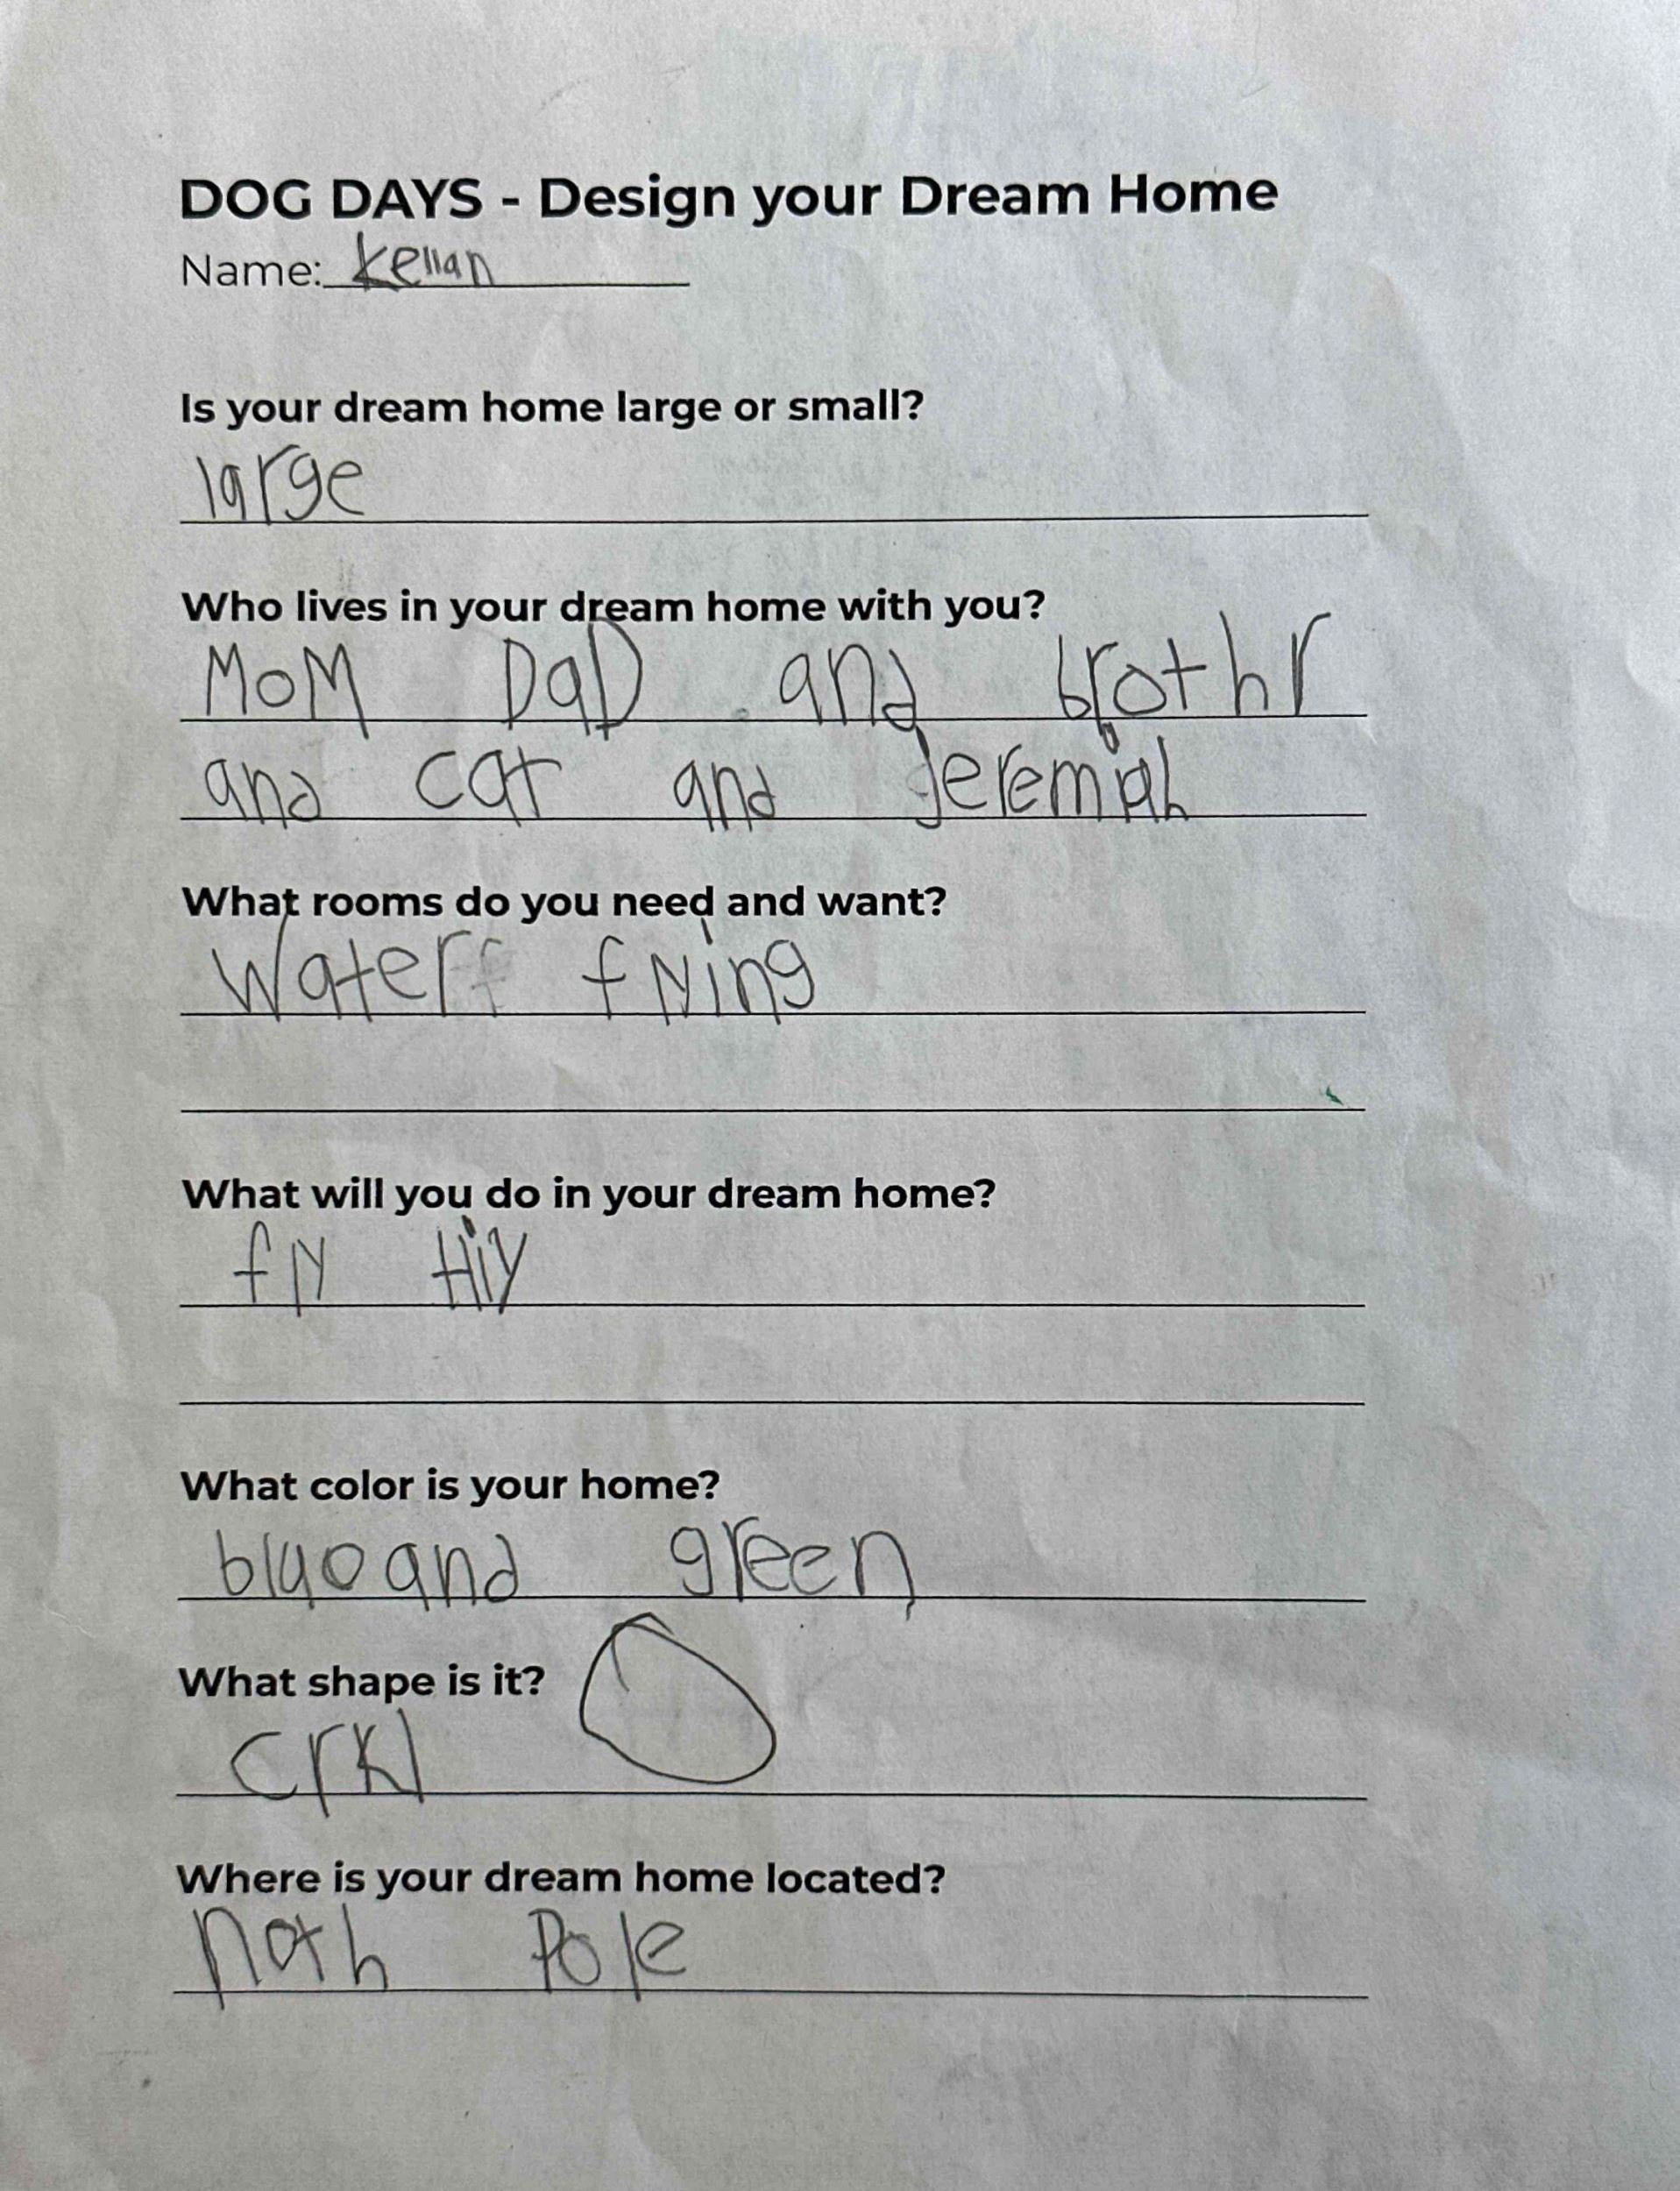 DOG DAYS - Design your Dream Home
Name: Kellan
Is your dream home large or small?
large
Who lives in your dream home with you?
MoM DaD and brothr
and cat and jeremiah
What rooms do you need and want?
Water flying
What will you do in your dream home?
fly
What color is your home?
bluo and green
What shape is it?
crkl
Where is your dream home located?
noth Pole